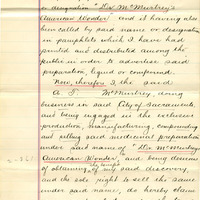 or designation "Dr. McMurtrey's
American Wonder" and it having also
been called by said name or designation
in pamphlets which I have had
printed and distributed among the
public in order to advertise said
preparation, liquid or compound.
Now, therefore I, the said
A. J. McMurtrey, doing
business in said City of Sacramento,
and being engaged in the exclusive
production, manufacturing, compounding
and selling said medicinal preparation
under said name of "Dr. McMurtrey's
American Wonder, and being desirous
of obtaining the benefit of my said discovery,
and the sole right to sell the same
under said name, do hereby claim